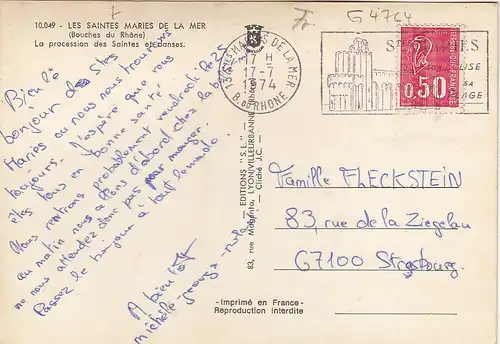 10.049 - LES SAINTES MARIES DE LA MER
(Bouches du Rhône)
La procession des Saintes et danses.
G 4764
Bien le
bonjour des Stes
Maries ou nous nous trouvons
toujours. J'espère que vous
êtes tous en bonne santé.
Nous rentrons probablement vendredi le 25
au matin nous allons d'abord chez la
ne nous attendez donc pas pour manger.
Passez le bonjour à tout le monde.
A bientôt
michelle - george -
13 STES MARIES DE LA MER
17 H
17-7
1974
B. DU RHONE
STES MARIES
SON EGLISE
SA
PLAGE
0,50
REPUBLIQUE FRANÇAISE
EDITIONS "S.L."
83, rue Magenta, LYON/VILLEURBANNE (Rhône)
Cliché J.C.
Famille FLECKSTEIN
83, rue de la Ziegelau
67100 Strasbourg.
- Imprimé en France -
Reproduction interdite